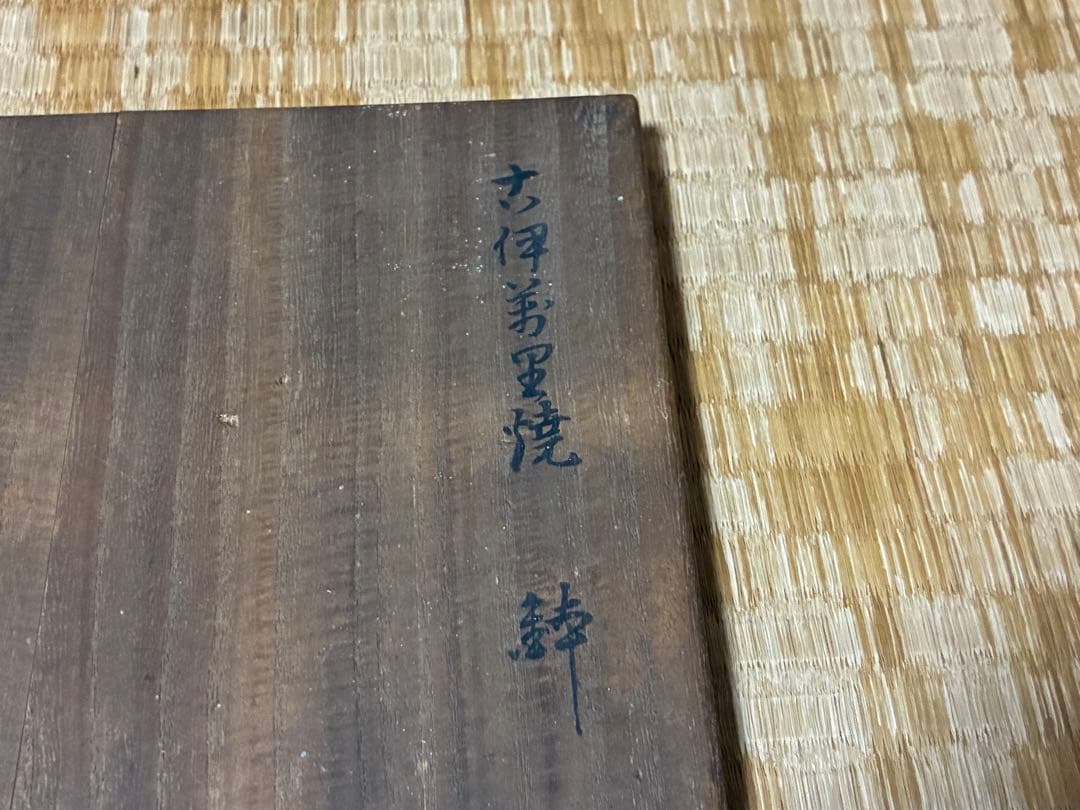 古伊萬里焼 鉢